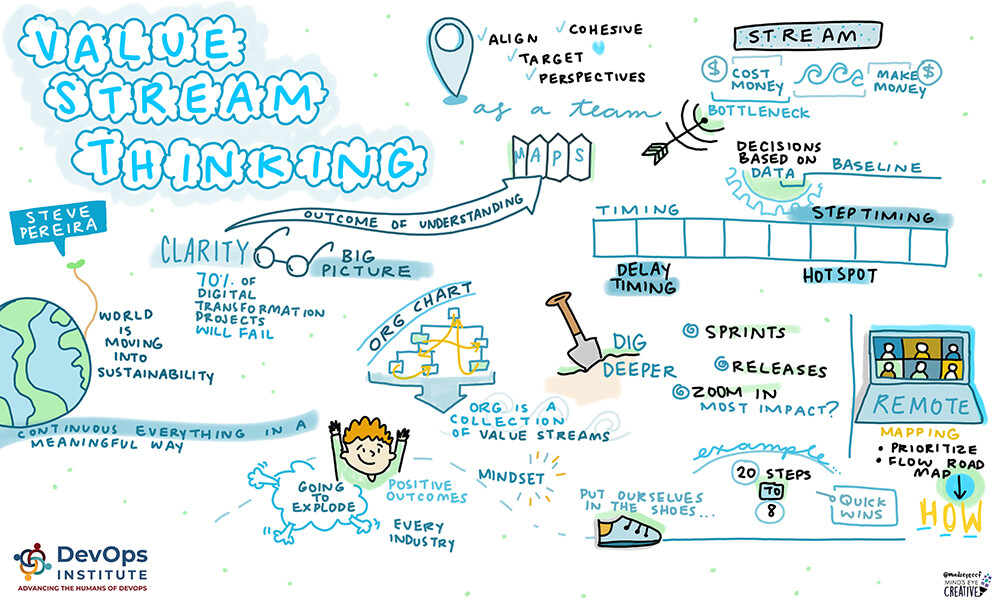 VALUE
STREAM
THINKING
STEVE
PEREIRA
ALIGN
COHESIVE
TARGET
PERSPECTIVES
as a team
MAPS
OUTCOME OF UNDERSTANDING
CLARITY
BIG
PICTURE
70% OF
DIGITAL
TRANSFORMATION
PROJECTS
WILL FAIL
STREAM
$ COST
MONEY
MAKE
MONEY $
BOTTLENECK
DECISIONS
BASED ON
DATA
BASELINE
TIMING
STEP TIMING
DELAY
TIMING
HOTSPOT
WORLD
IS
MOVING
INTO
SUSTAINABILITY
CONTINUOUS EVERYTHING IN A
MEANINGFUL WAY
ORG CHART
ORG IS A
COLLECTION
OF VALUE STREAMS
DIG
DEEPER
SPRINTS
RELEASES
ZOOM IN
MOST IMPACT?
REMOTE
MAPPING
• PRIORITIZE
• FLOW ROAD
MAP
HOW
GOING
TO
EXPLODE
POSITIVE
OUTCOMES
EVERY
INDUSTRY
MINDSET
PUT OURSELVES
IN THE SHOES...
example...
20 STEPS
TO
8
QUICK
WINS
DevOps
INSTITUTE
ADVANCING THE HUMANS OF DEVOPS
MIND'S EYE
CREATIVE